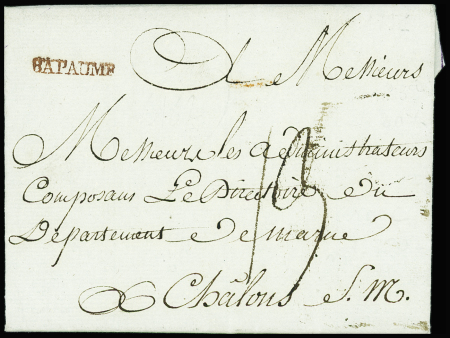 BAPAUME
A Messieurs
Messieurs les administrateurs
Composans Le Directoire du
Département de marne
A Châlons S. M.
13